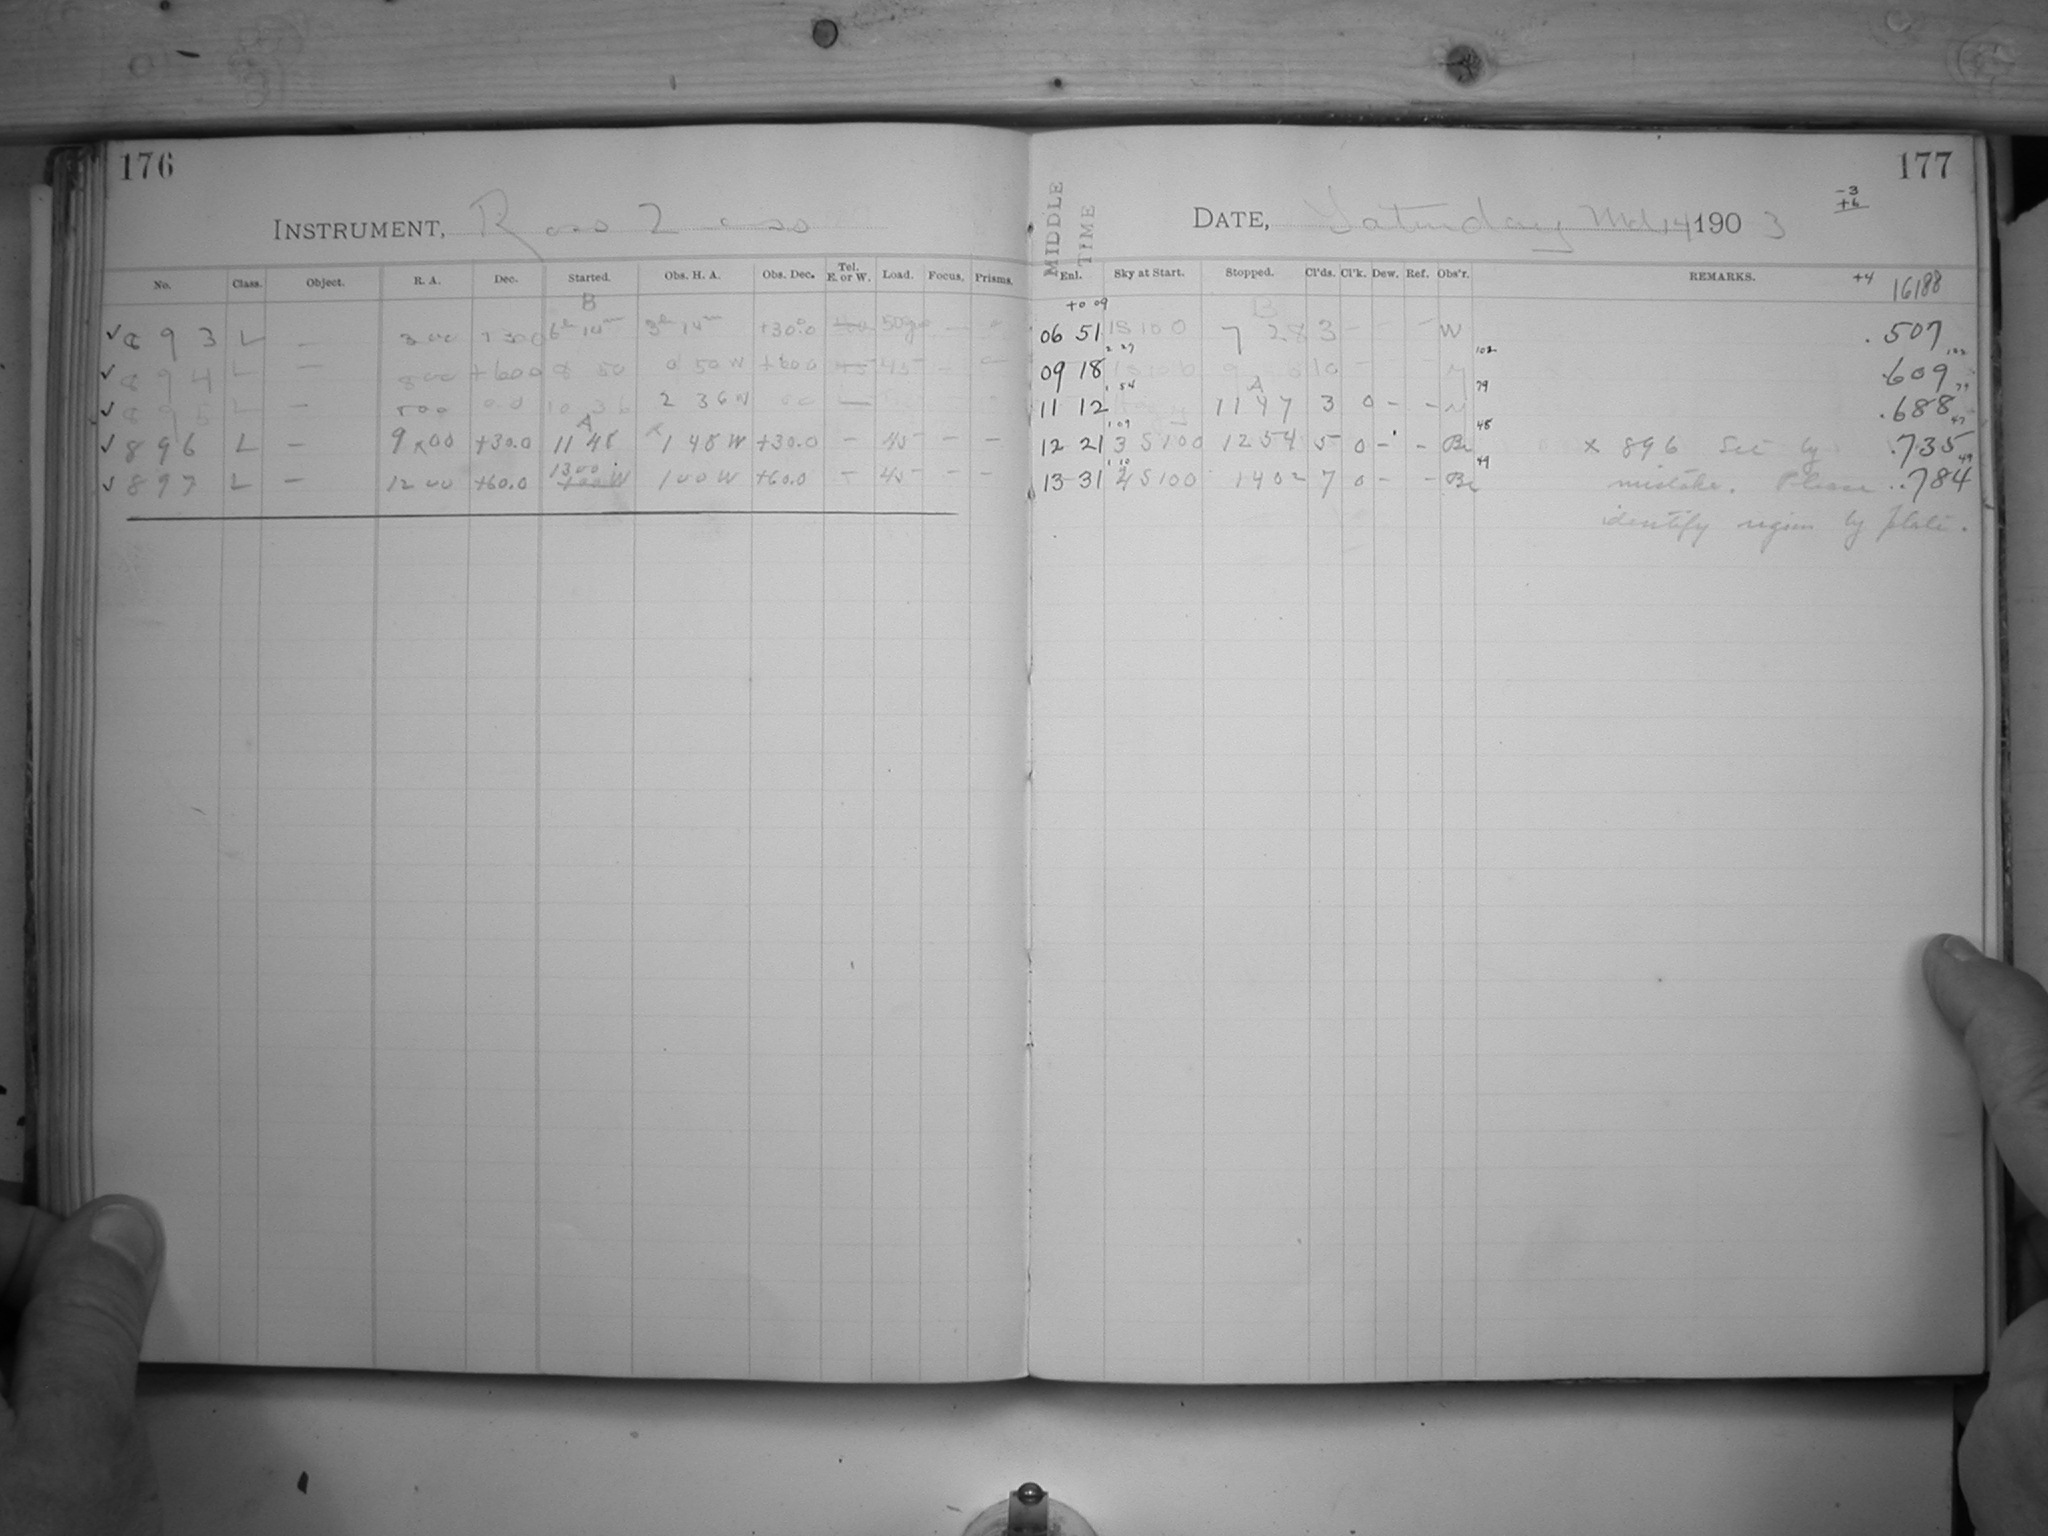 176
INSTRUMENT, Ross 2
No. Class. Object. R. A. Dec. Started. Obs. H. A. Obs. Dec. Tel. E. or W. Load. Focus. Prisms.
B
893 L — 300 +300 6h 14m 3h 14m +30.0 —
894 L — 800 +600 8 50 0 50 W +600 45 —
895 L — 10 36 2 36 W 00 —
A
896 L — 9 x 00 +30.0 11 48 x 1 48 W +30.0 — 45 — —
897 L — 12 00 +60.0 13 00 1 00 W +60.0 — 45 — —
177
-3
+6
MIDDLE TIME
DATE, Saturday Mch 14 1903
Enl. Sky at Start. Stopped. Cl'ds. Cl'k. Dew. Ref. Obs'r. REMARKS. +4 16188
+0 09
06 51 1S100 7 28 3 — — — W .507
2 27 102 102
09 18 10 — .609
1 54 A 79 79
11 12 11 47 3 0 — — .688
1 09 48 47
12 21 3 S100 12 54 5 0 — — Be x 896 Set by .735
1 10 49 49
13 31 4 S100 14 02 7 0 — — Be mistake. Please ..784
identify region by plate.